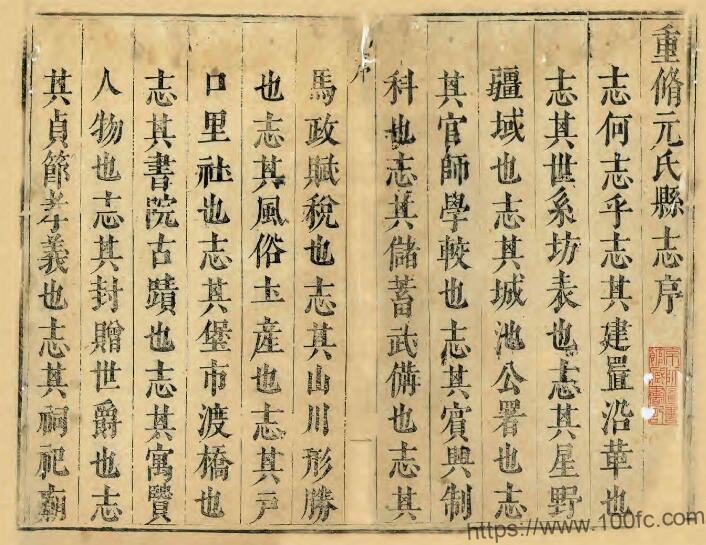 重脩元氏縣志序
志何志乎志其建置沿革也
志其世系坊表也志其星野
疆域也志其城池公署也志
其官師學較也志其賓興制
科也志其儲蓄武備也志其
馬政賦稅也志其山川形勝
也志其風俗土產也志其戸
口里社也志其堡市渡橋也
志其書院古蹟也志其寓賢
人物也志其封贈世爵也志
其貞節孝義也志其祠祀廟
https://www.100fc.com